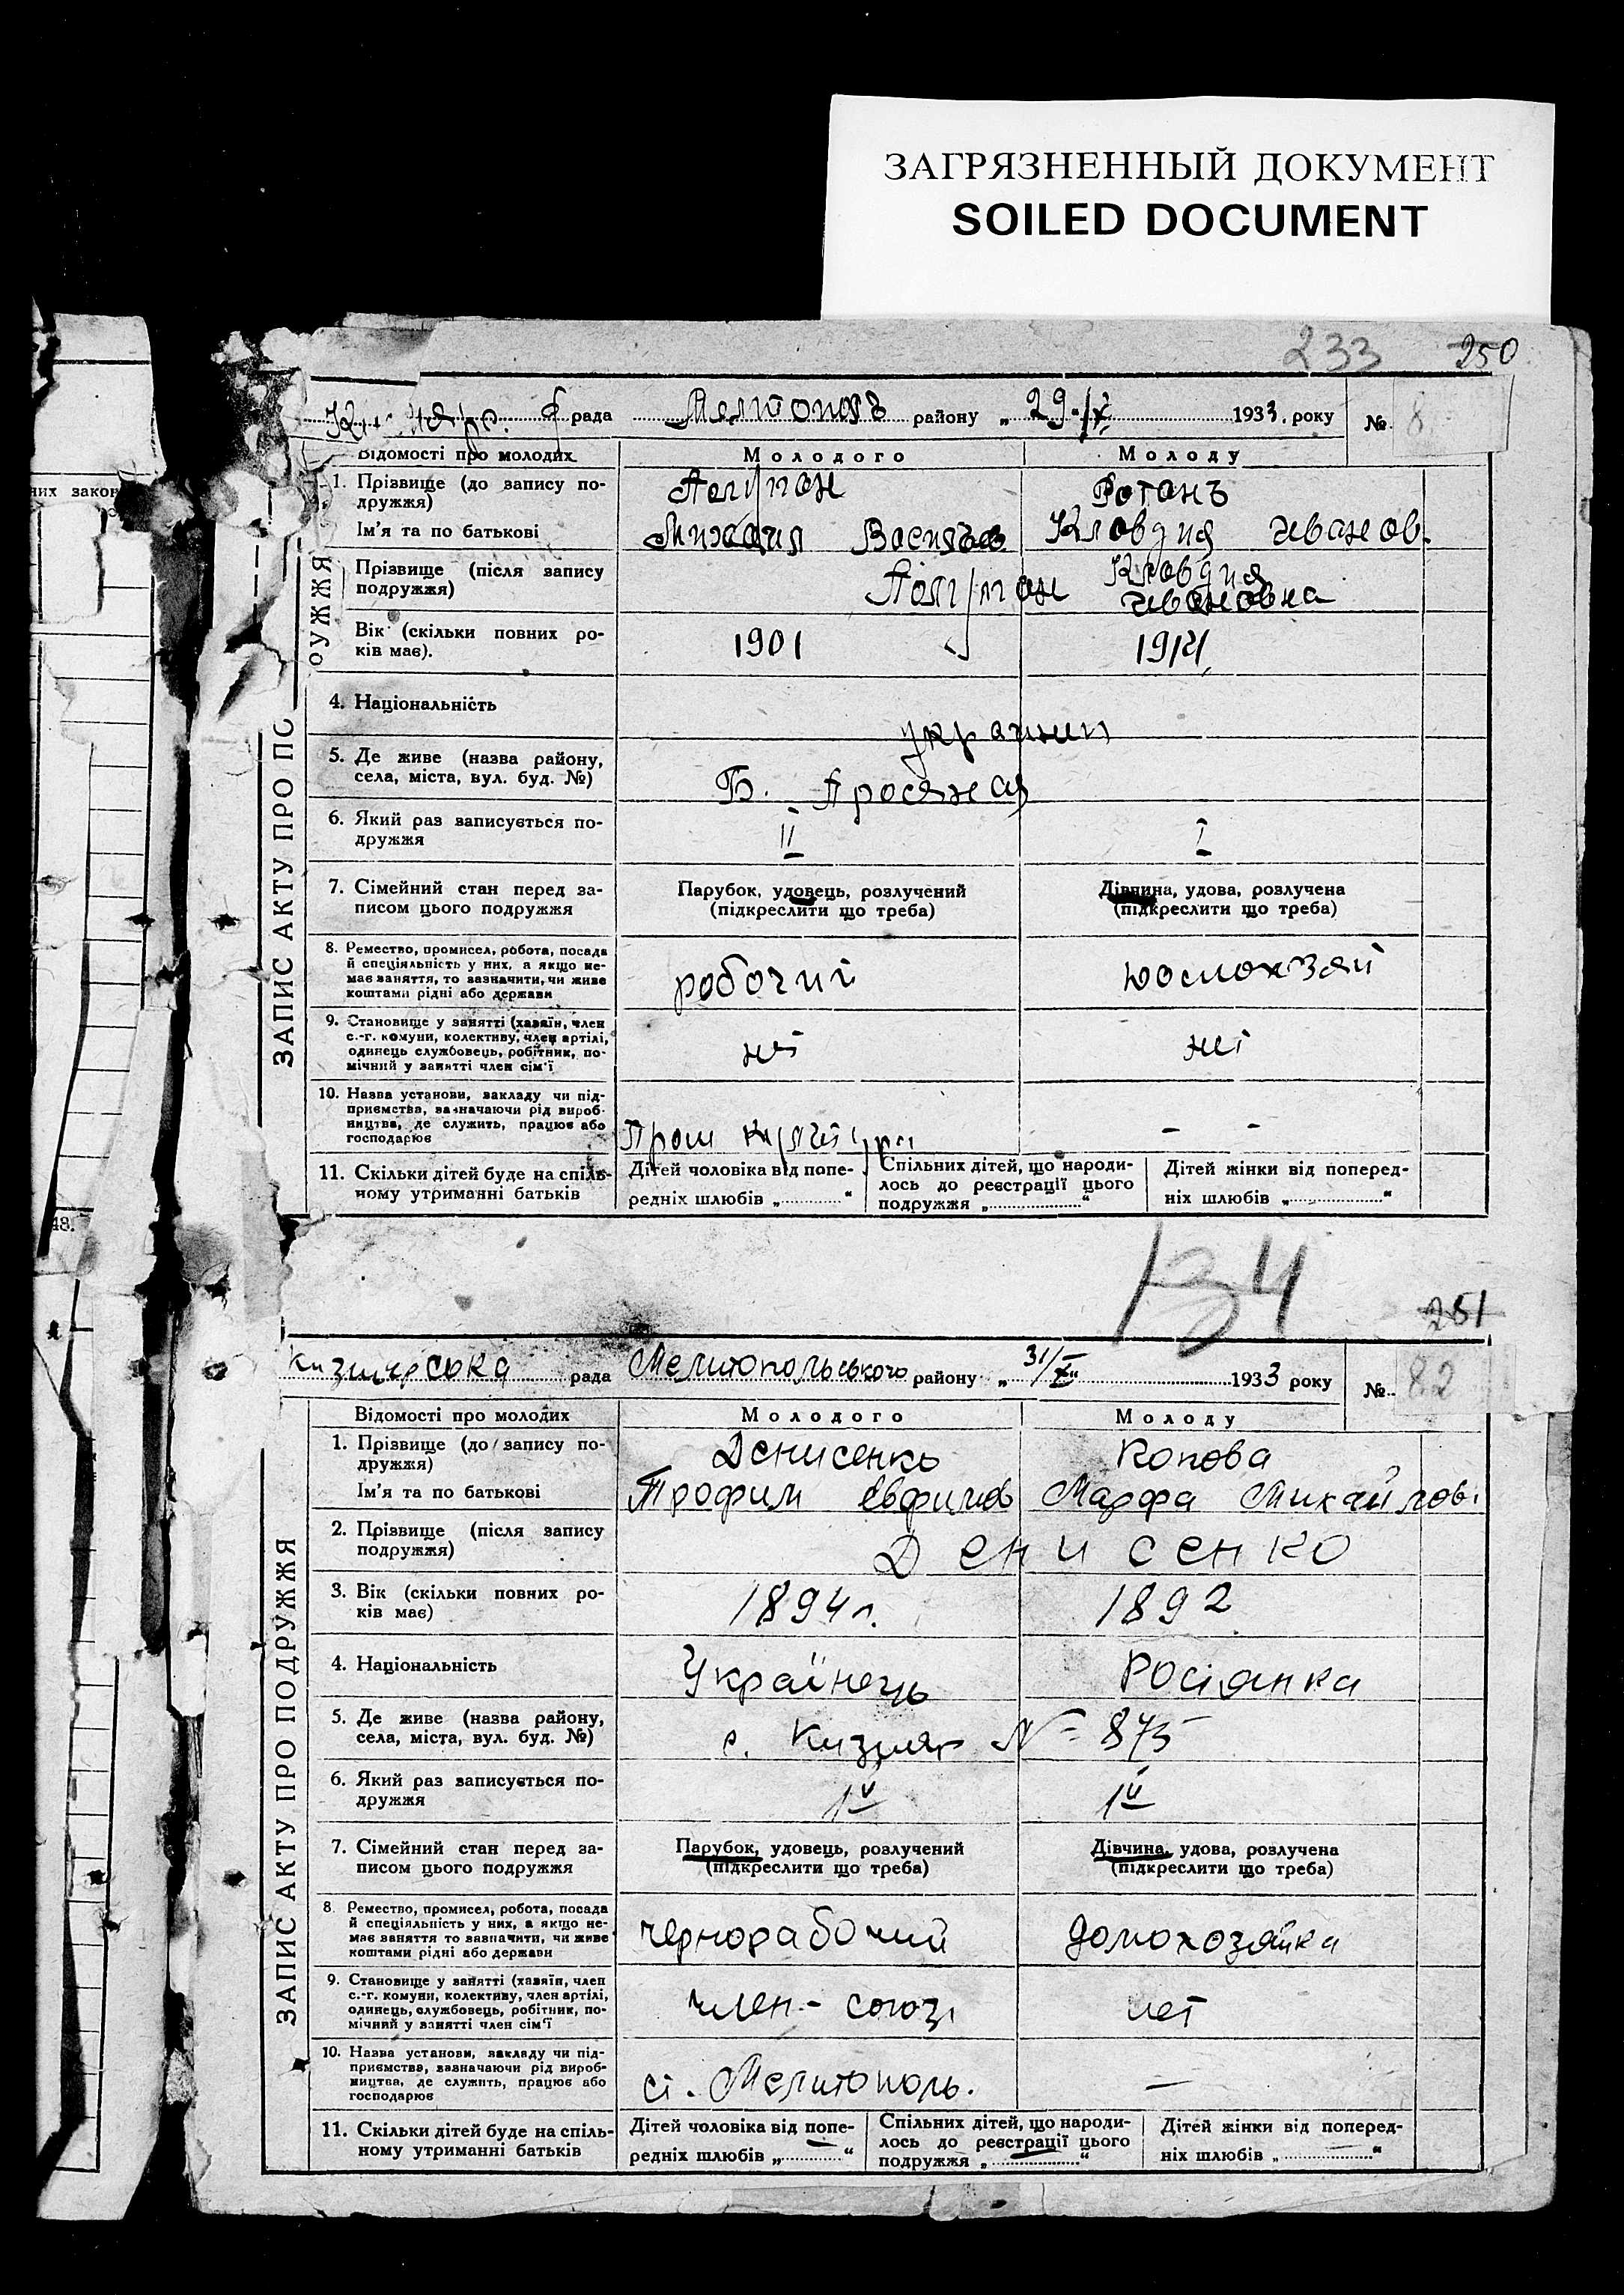 ЗАГРЯЗНЕННЫЙ ДОКУМЕНТ
SOILED DOCUMENT
233 250
рада район у „ 29 1933. року № 8
Відомості про молодих Молодого Молоду
1. Прізвище (до запису по-
дружжя)
Ротань
Ім'я та по батькові Клавдия Иванов.
Прізвище (після запису
подружжя)
Клавдия
Ивановна
Вік (скільки повних ро-
ків має).
1901 1914
4. Національність
украинц
5. Де живе (назва району,
села, міста, вул. буд. №)
6. Який раз записується по-
дружжя
II I
7. Сімейний стан перед за-
писом цього подружжя
Парубок, удовець, розлучений
(підкреслити що треба)
Дівчина, удова, розлучена
(підкреслити що треба)
8. Ремество, промисел, робота, посада
й спеціяльність у них, а якщо не-
має заняття, то зазначити, чи живе
коштами рідні або держави
робочий
9. Становище у занятті (хазяїн, член
с.-г. комуни, колективу, член артілі,
одинець службовець, робітник, по-
мічний у занятті член сім'ї
нет нет
10. Назва установи, закладу чи під-
приємства, зазначаючи рід вироб-
ництва, де служить, працює або
господарює
– –
11. Скільки дітей буде на спіль-
ному утриманні батьків
Дітей чоловіка від попе-
редніх шлюбів „ “
Спільних дітей, що народи-
лось до реєстрації цього
подружжя „ “
Дітей жінки від поперед-
ніх шлюбів „ “
ЗАПИС АКТУ ПРО ПО
ОУЖЖЯ
них закон
48.
134
251
Кизиярська рада Мелитопольського району „ 31/X “ 1933 року № 82
Відомості про молодих Молодого Молоду
1. Прізвище (до запису по-
дружжя)
Денисенко Копова
Ім'я та по батькові Трофим Евфимов Марфа Михайлов.
2. Прізвище (після запису
подружжя)
Денисенко
3. Вік (скільки повних ро-
ків має)
1894 г. 1892
4. Національність Українець Росіянка
5. Де живе (назва району,
села, міста, вул. буд. №)
с. Кизияр № 875
6. Який раз записується по-
дружжя
7. Сімейний стан перед за-
писом цього подружжя
Парубок, удовець, розлучений
(підкреслити що треба)
Дівчина, удова, розлучена
(підкреслити що треба)
8. Ремество, промисел, робота, посада
й спеціяльність у них, а якщо не-
має заняття то зазначити, чи живе
коштами рідні або держави
чернорабочий домохозяйка
9. Становище у занятті (хазяїн, член
с.-г. комуни, колективу, член артілі,
одинець, службовець, робітник, по-
мічний у занятті член сім'ї
член - союзі нет
10. Назва установи, закладу чи під-
приємства, зазначаючи рід вироб-
ництва, де служить, працює або
господарює
ст. Мелитополь. —
11. Скільки дітей буде на спіль-
ному утриманні батьків
Дітей чоловіка від попе-
редніх шлюбів „ “
Спільних дітей, що народи-
лось до реєстрації цього
подружжя „ “
Дітей жінки від поперед-
ніх шлюбів „ “
ЗАПИС АКТУ ПРО ПОДРУЖЖЯ